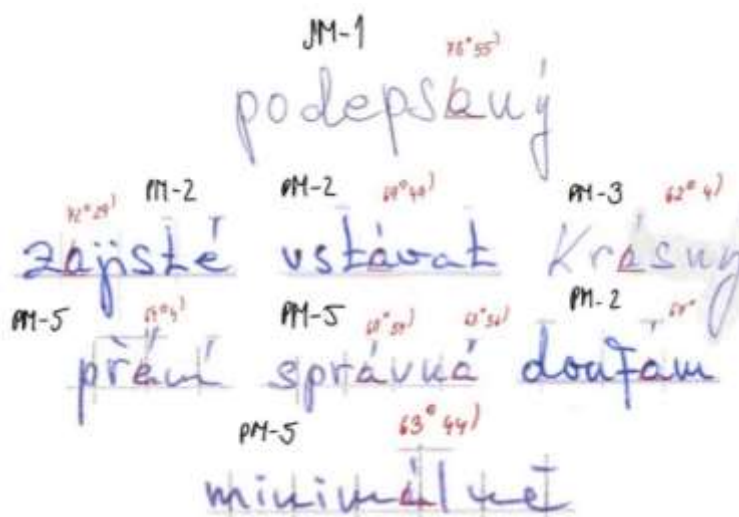 JM-1
76° 55'
podepsaný
PM-2 PM-2 PM-3 62° 4'
zajisté vstávat Krásný
PM-5 PM-5 PM-2
přání správná doufám
PM-5 63° 44'
minimálně